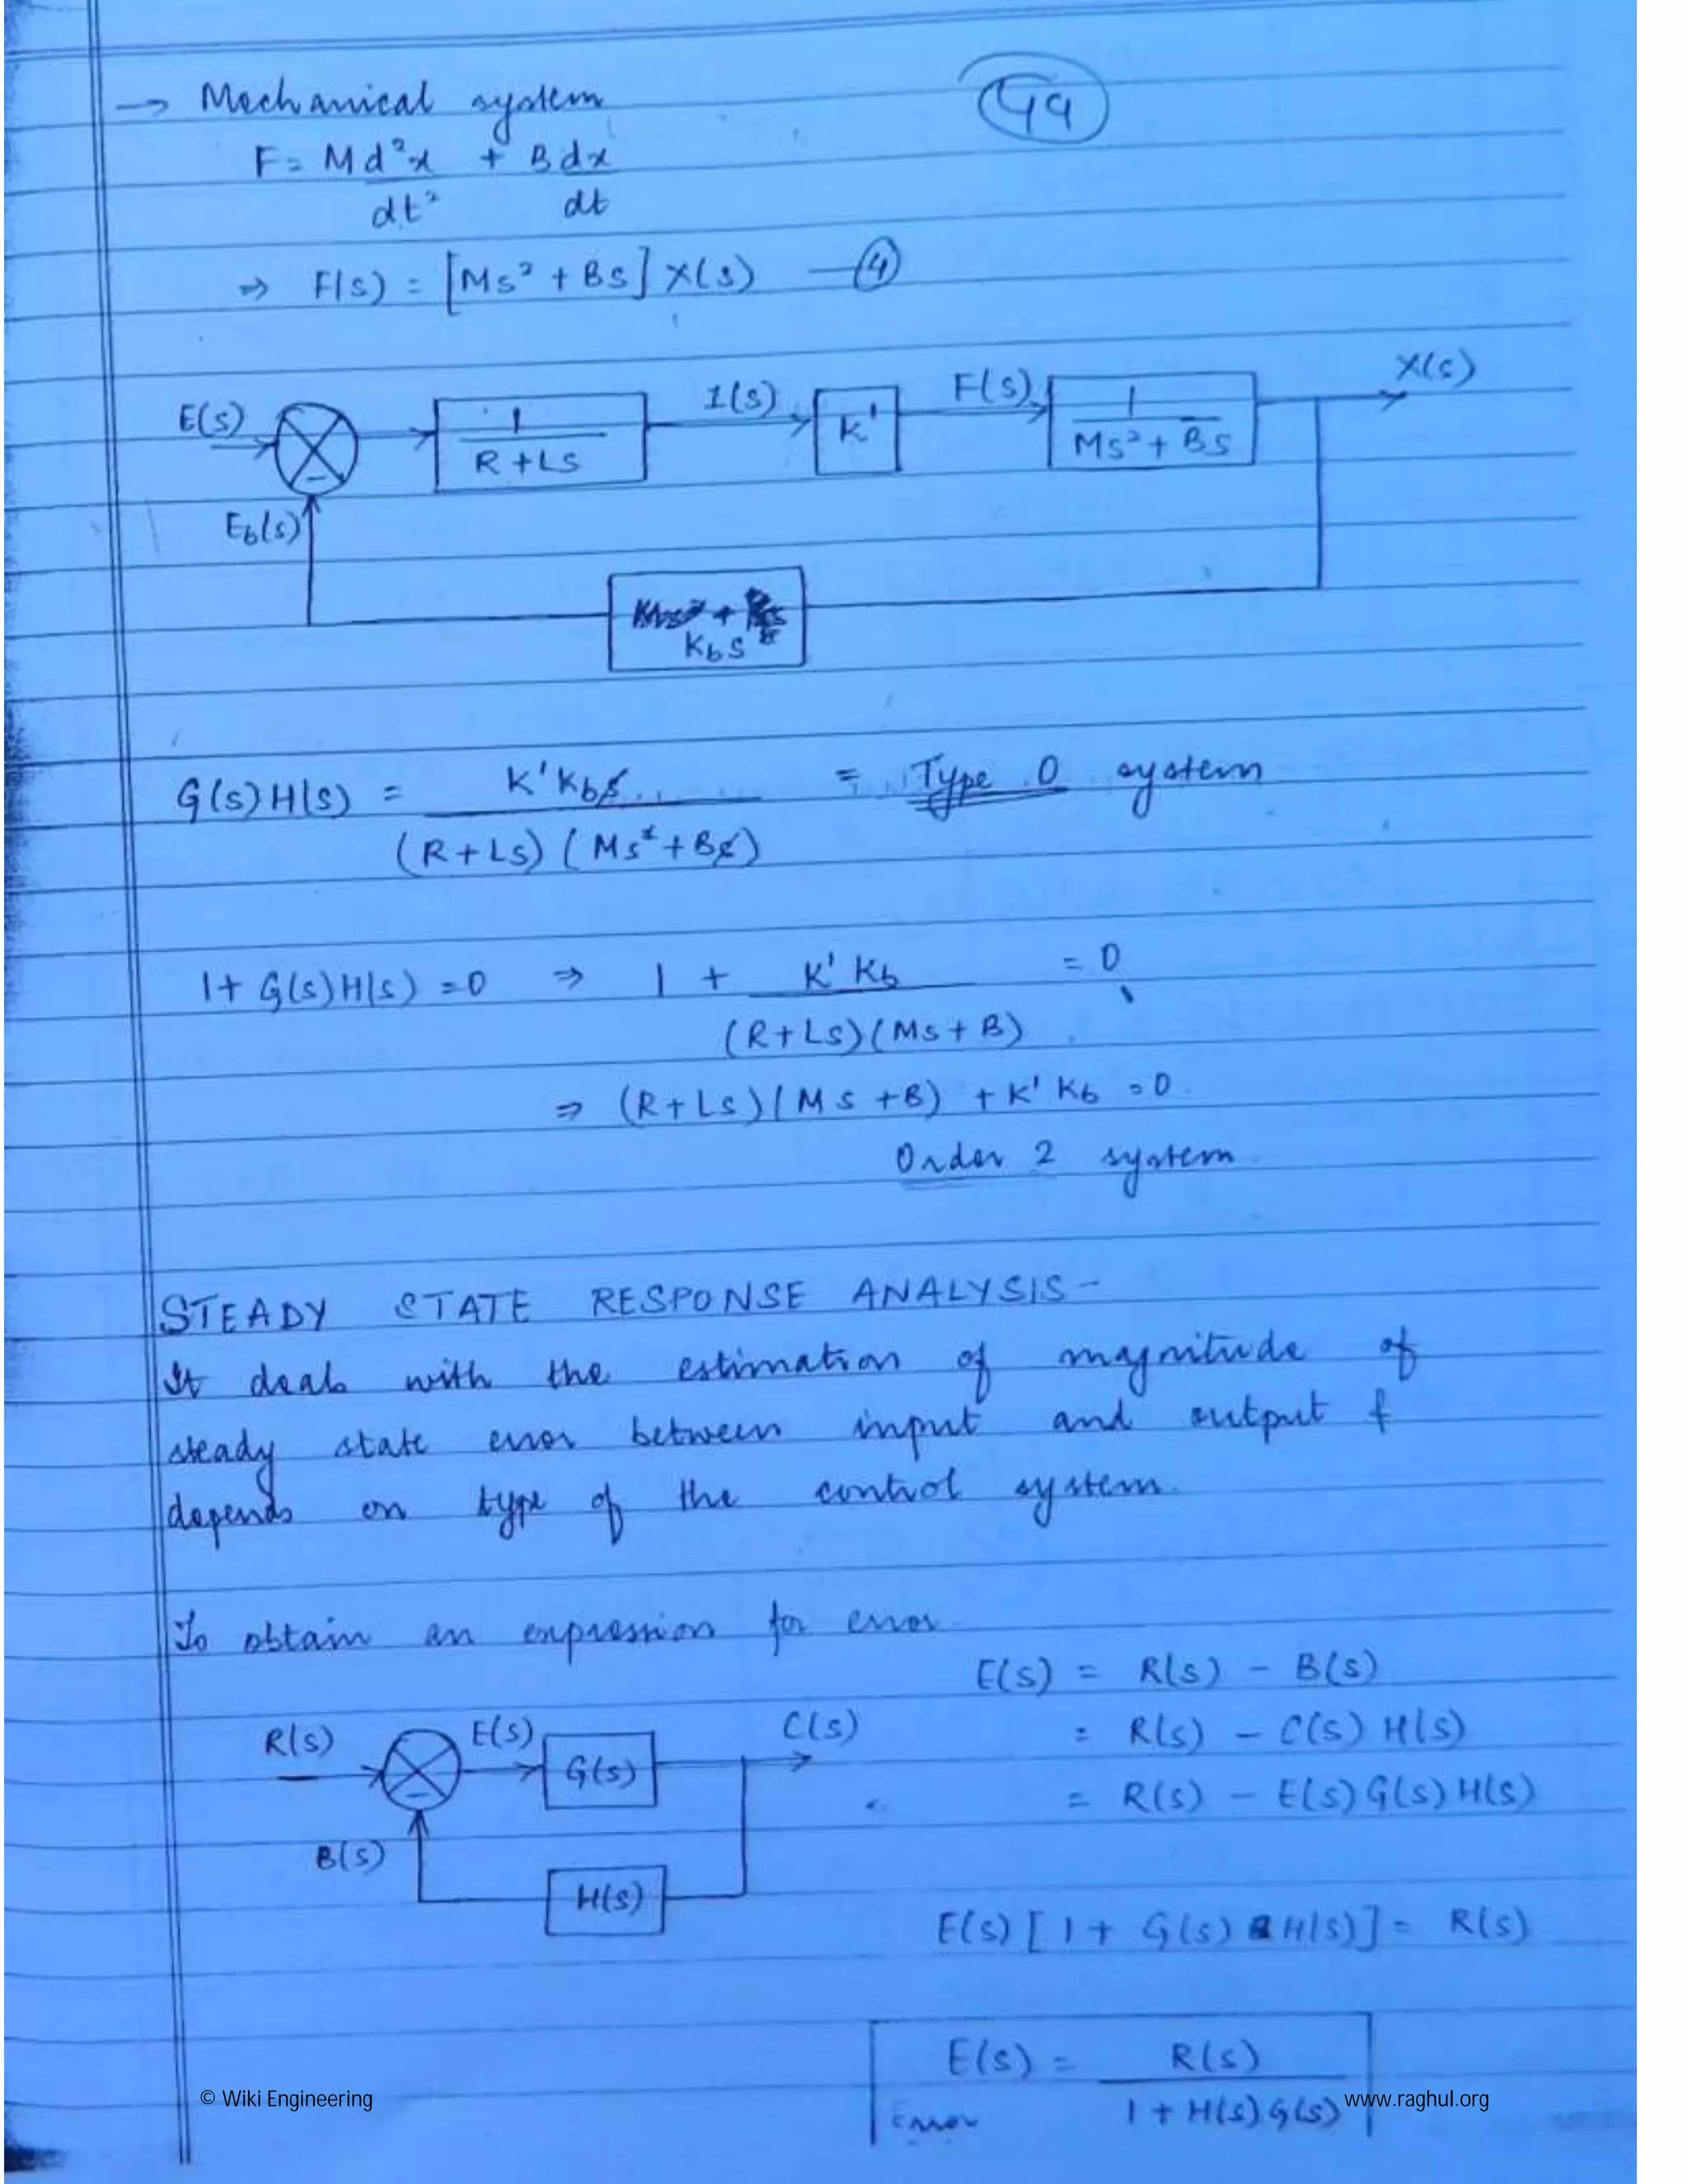 → Mechanical system
44
F = M d²x + B dx
dt² dt
⇒ F(s) = [Ms² + Bs] X(s) —④
E(s)
1
R + Ls
I(s)
K'
F(s)
1
Ms² + Bs
X(s)
−
Eb(s)
Kbs
G(s)H(s) = K'Kbs = Type 0 system
(R+Ls) (Ms²+Bs)
1+ G(s)H(s) =0 ⇒ 1 + K' Kb = 0
(R+Ls)(Ms+B)
⇒ (R+Ls)(Ms +B) + K' Kb = 0
Order 2 system
STEADY STATE RESPONSE ANALYSIS -
It deals with the estimation of magnitude of
steady state error between input and output &
depends on type of the control system.
To obtain an expression for error
E(s) = R(s) - B(s)
= R(s) - C(s) H(s)
= R(s) - E(s) G(s) H(s)
R(s)
E(s)
G(s)
C(s)
−
B(s)
H(s)
E(s) [ 1 + G(s) H(s)] = R(s)
E(s) = R(s)
Error 1 + H(s) G(s)
© Wiki Engineering
www.raghul.org